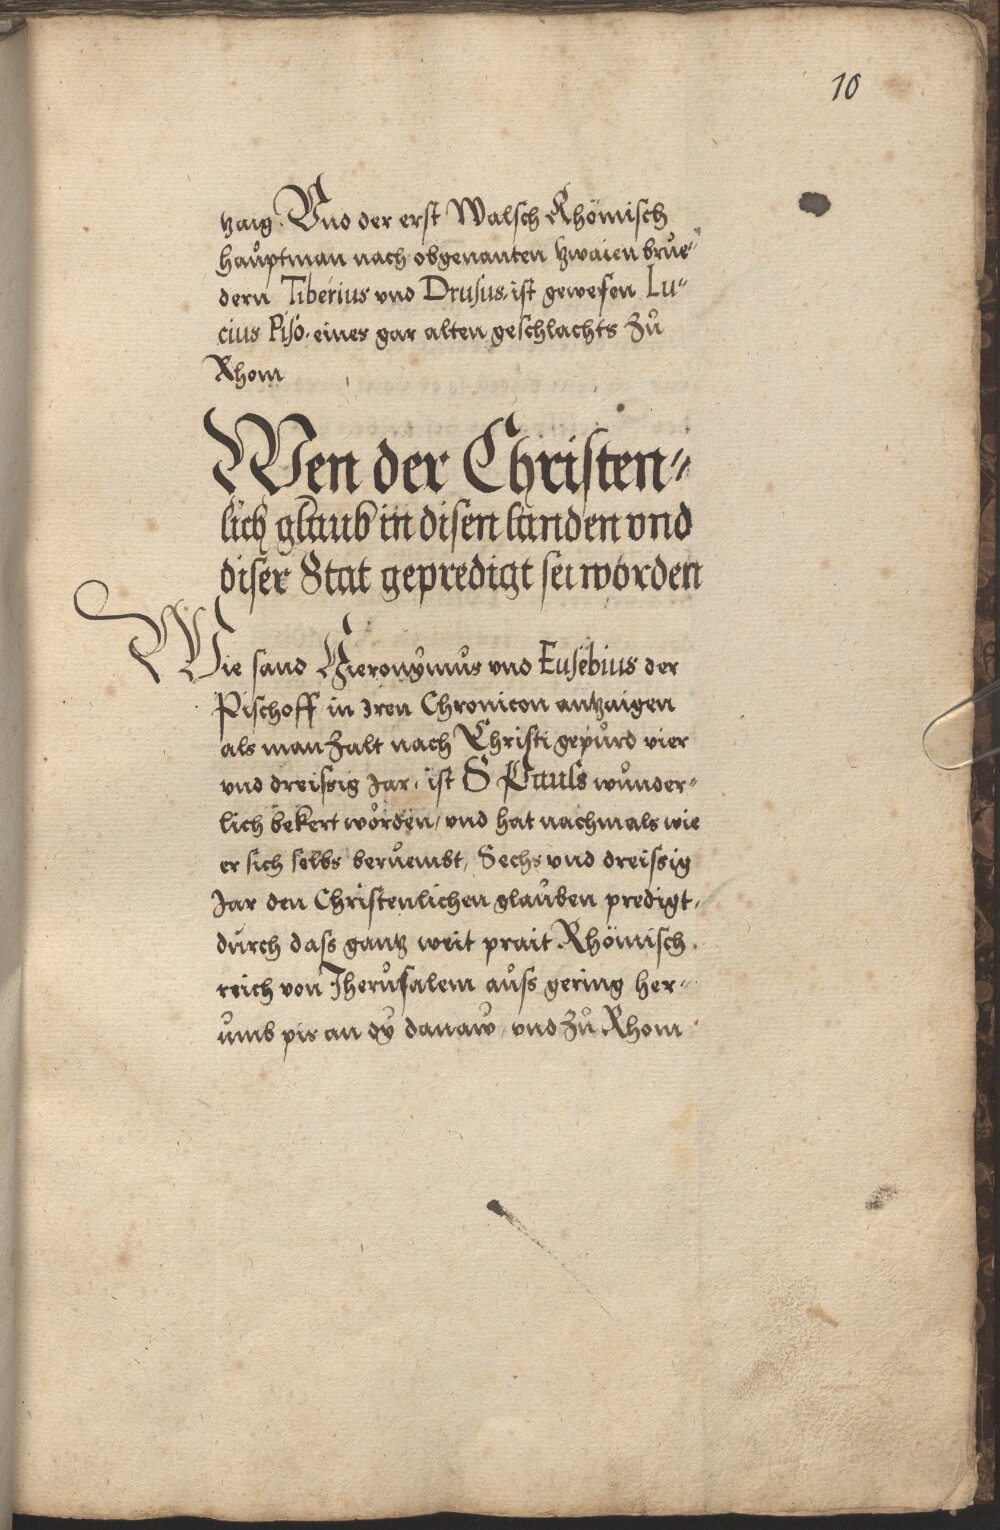 10
tzaig. Vnd der erst Walsch Rhömisch
haůptman nach obgenanten tzwaien brůe⸗
dern Tiberius vnd Drusus, ist gewesen Lu⸗
cius Piso, eines gar alten geschlachts zů
Rhom
Wen der Christen⸗
lich glaub in disen landen vnd
diser Stat gepredigt sei worden
Wie sand Hieronÿmus vnd Eusebius der
Pischoff in iren Chronicon antzaigen
als man zalt nach Christi gepůrd vier
vnd dreissig Jar, ist S Pauls wůnder⸗
lich bekert worden, vnd hat nachmals wie
er sich selbs berůembt, Sechs vnd dreissig
Jar den Christenlichen glaůben predigt,
důrch dass gantz weit prait Rhömisch
reich von Jherůsalem aůss gering her⸗
ůmb pis an dÿ danaw, vnd zů Rhom